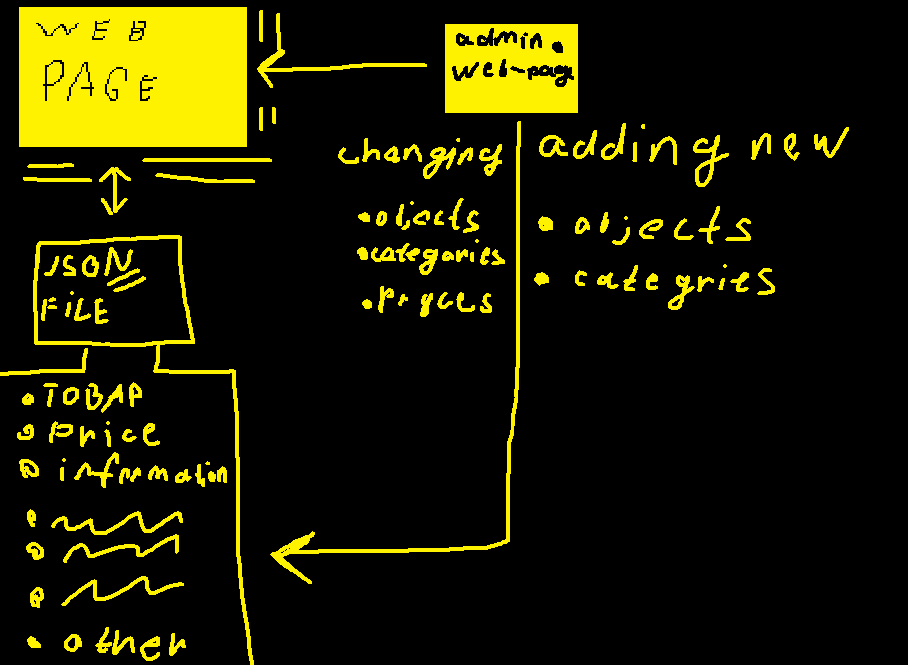 WEB
PAGE
admin.
web-page
changing
• objects
• categories
• pryces
adding new
• objects
• categries
JSON
FILE
• TOBAP
• Price
• information
• other